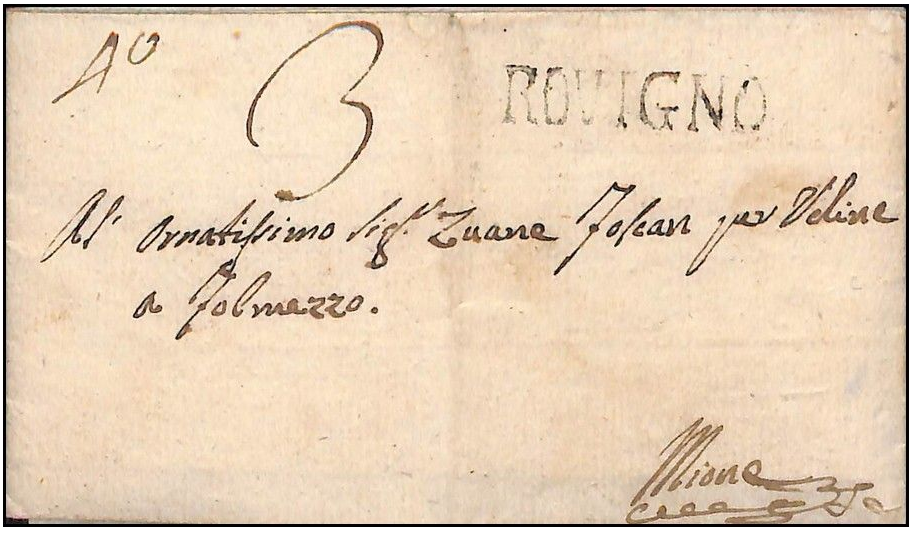 4º 3 ROVIGNO
Al' Ornatissimo Sigr. Zuane Toscan per Udine
a Tolmezzo.
Mione